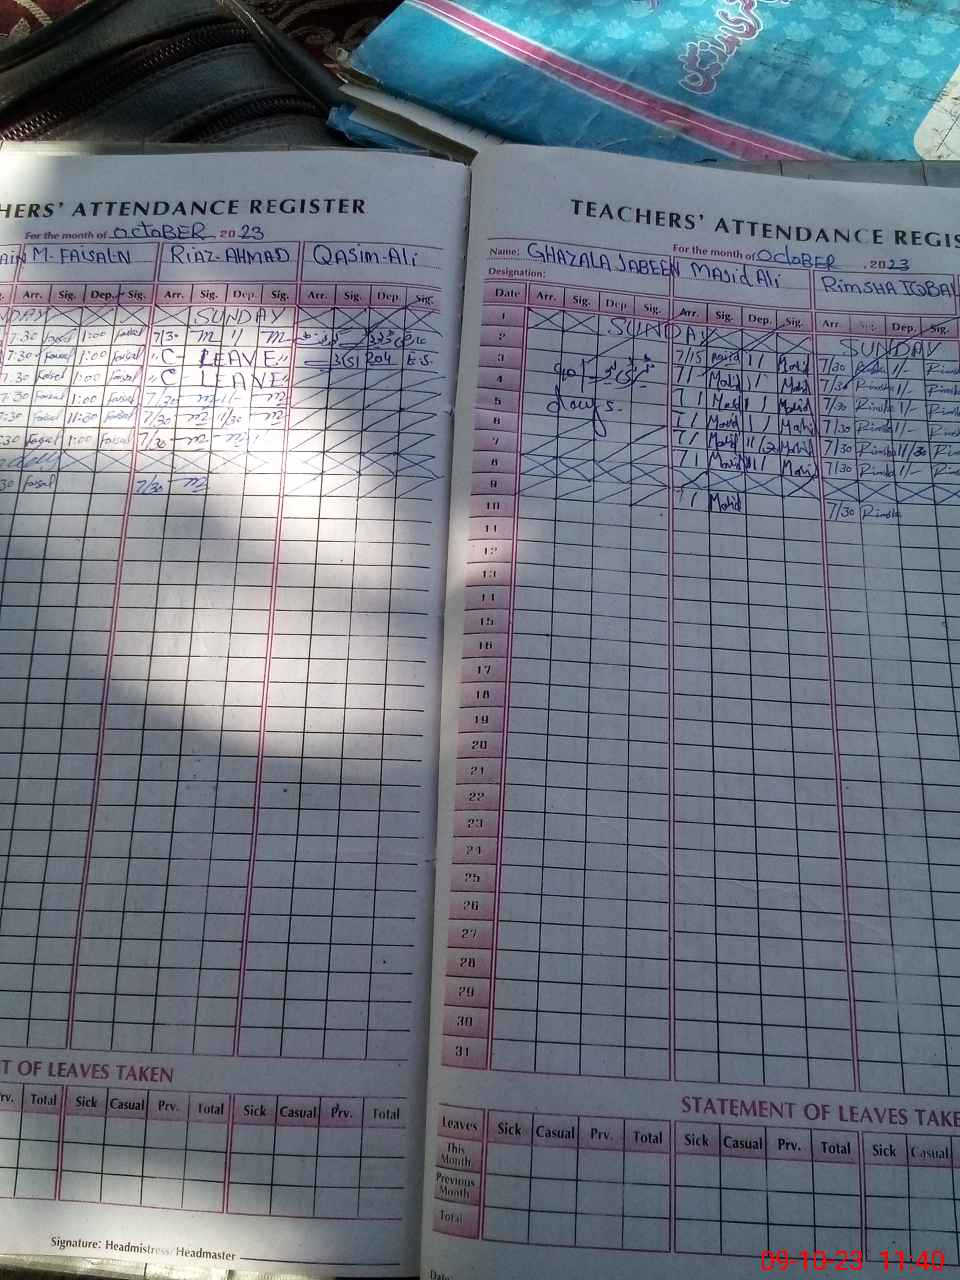 HERS' ATTENDANCE REGISTER
For the month of OCTOBER 2023
AIN M. FAISALN RIAZ-AHMAD QASIM-Ali
Arr. Sig. Dep. Sig. Arr. Sig. Dep. Sig. Arr. Sig. Dep. Sig.
NDAY SUNDAY
7:30 faisal 1:00 faisal 7/30 m 1/ m
7:30 faisal 1:00 faisal "C- LEAVE" 3151 204 E.S.
7:30 faisal 1:00 faisal "C- LEAVE"
7:30 faisal 1:00 faisal 7/30 m 1/- m
7:30 faisal 11:30 faisal 7/30 m 11/30 m
:30 faisal 1:00 faisal 7/30 m
30 faisal 7/30 m
T OF LEAVES TAKEN
rv. Total Sick Casual Prv. Total Sick Casual Prv. Total
Signature: Headmistress/Headmaster
TEACHERS' ATTENDANCE REGIS
For the month of OCTOBER, 2023
Name: GHAZALA JABEEN MAJID Ali RIMSHA IQBAL
Designation:
Date Arr. Sig. Dep. Sig. Arr. Sig. Dep. Sig. Arr. Sig. Dep. Sig.
1 SUNDAY SUNDAY
2 7/15 Majid 1/ Majid 7/30 Rimsha 1/- Rimsha
3 90 7/ Majid 1/- Majid 7/30 Rimsha 1/- Rimsha
4 days. 7/ Majid 1/ Majid 7/30 Rimsha 1/- Rimsha
5 7/ Majid 1/ Majid 7/30 Rimsha 1/- Rimsha
6 7/ Majid 11/30 Majid 7/30 Rimsha 11/30 Rimsha
7 7/ Majid 1/ Majid 7/30 Rimsha 1/- Rimsha
8
9 7/ Majid 7/30 Rimsha
10
11
12
13
14
15
16
17
18
19
20
21
22
23
24
25
26
27
28
29
30
31
STATEMENT OF LEAVES TAKE
Leaves Sick Casual Prv. Total Sick Casual Prv. Total Sick Casual
This Month
Previous Month
Total
Date
09-10-23 11:40